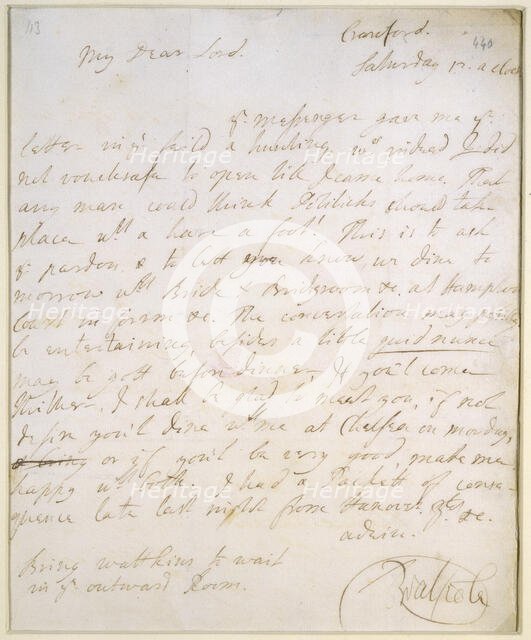 113
440
Cranford.
My Dear Lord. Saturday 12. a clock
yr. messenger gave me yr.
letter in ye. feild a hunting, wch. indeed I did
not vouchsafe to open till I came home. That
any man could think Politicks should take
place wth. a hare a foot! This is to ask
yr. pardon, & to lett you know, we dine to
morrow wth. Bride & Bridegroom &c. at Hampton
Court in forme &c. The conversation may
be entertaining besides a little quid nunc
may be gott before dinner, If you'l come
thither, I shall be glad to meet you, if not
desire you'l dine wth. me at Chelsea on monday,
or if you'l be very good, make me
happy wth. both. I had a Packett of conse-
quence late last night from Hanover &c.
adieu.
Bring watkins to wait
in ye. outward Room.
RWalpole
Heritage
Heritage
Heritage
Heritage
Heritage
Heritage
Heritage
Heritage
©